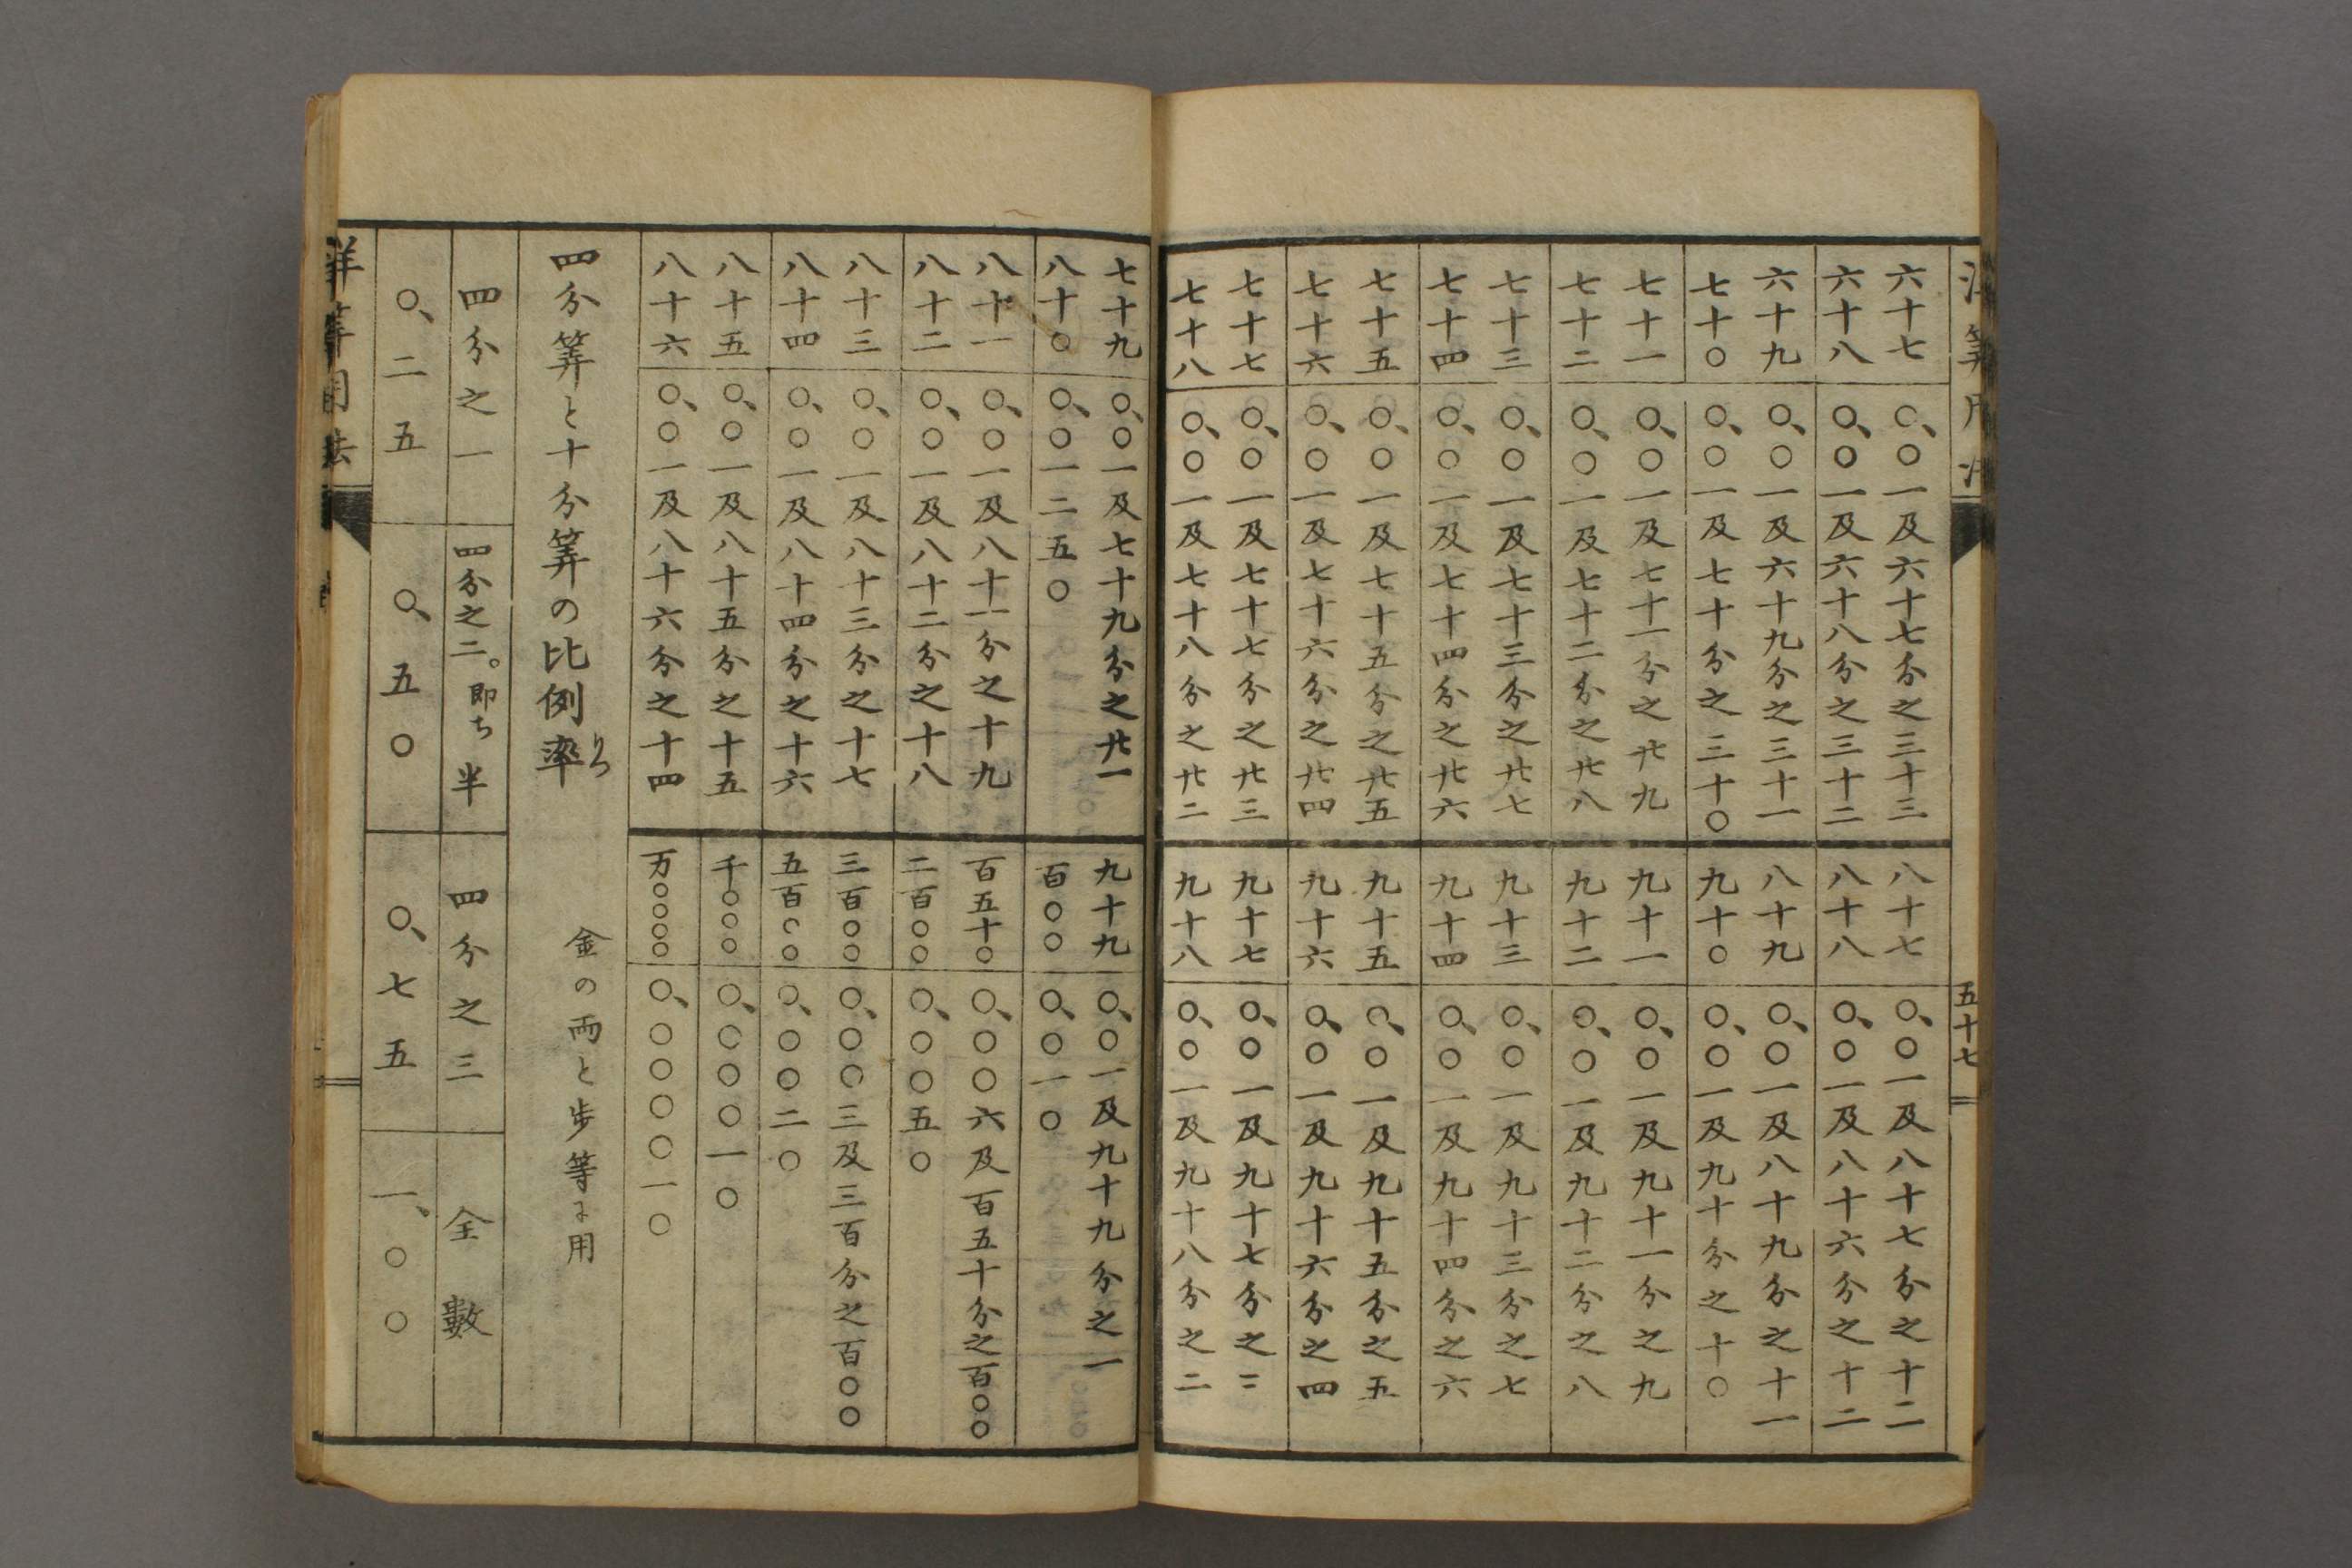 六十七 〇、〇一及六十七分之三十三
六十八 〇、〇一及六十八分之三十二
六十九 〇、〇一及六十九分之三十一
七十〇 〇、〇一及七十分之三十〇
七十一 〇、〇一及七十一分之廿九
七十二 〇、〇一及七十二分之廿八
七十三 〇、〇一及七十三分之廿七
七十四 〇、〇一及七十四分之廿六
七十五 〇、〇一及七十五分之廿五
七十六 〇、〇一及七十六分之廿四
七十七 〇、〇一及七十七分之廿三
七十八 〇、〇一及七十八分之廿二
八十七 〇、〇一及八十七分之十二
八十八 〇、〇一及八十六分之十二
八十九 〇、〇一及八十九分之十一
九十〇 〇、〇一及九十分之十〇
九十一 〇、〇一及九十一分之九
九十二 〇、〇一及九十二分之八
九十三 〇、〇一及九十三分之七
九十四 〇、〇一及九十四分之六
九十五 〇、〇一及九十五分之五
九十六 〇、〇一及九十六分之四
九十七 〇、〇一及九十七分之二
九十八 〇、〇一及九十八分之二
五十七
七十九 〇、〇一及七十九分之廿一
八十〇 〇、〇一二五〇
八十一 〇、〇一及八十一分之十九
八十二 〇、〇一及八十二分之十八
八十三 〇、〇一及八十三分之十七
八十四 〇、〇一及八十四分之十六
八十五 〇、〇一及八十五分之十五
八十六 〇、〇一及八十六分之十四
九十九 〇、〇一及九十九分之一
百〇〇 〇、〇一〇
百五十〇 〇、〇〇六及百五十分之百〇〇
二百〇〇 〇、〇〇五〇
三百〇〇 〇、〇〇三及三百分之百〇〇
五百〇〇 〇、〇〇二〇
千〇〇〇 〇、〇〇〇一〇
万〇〇〇〇 〇、〇〇〇〇一〇
四分筭と十分筭の比例率 りつ
金の両と歩等に用
四分之一 四分之二。即ち半 四分之三 全數
〇、二五 〇、五〇 〇、七五 一、〇〇
洋筭用法